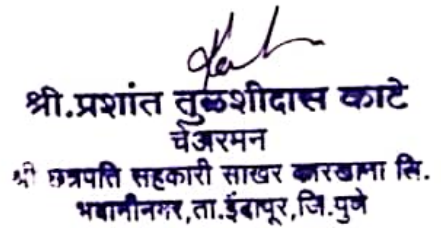 श्री.प्रशांत तुळशीदास काटे
चेअरमन
श्री छत्रपति सहकारी साखर कारखाना लि.
भवानीनगर,ता.इंदापूर,जि.पुणे